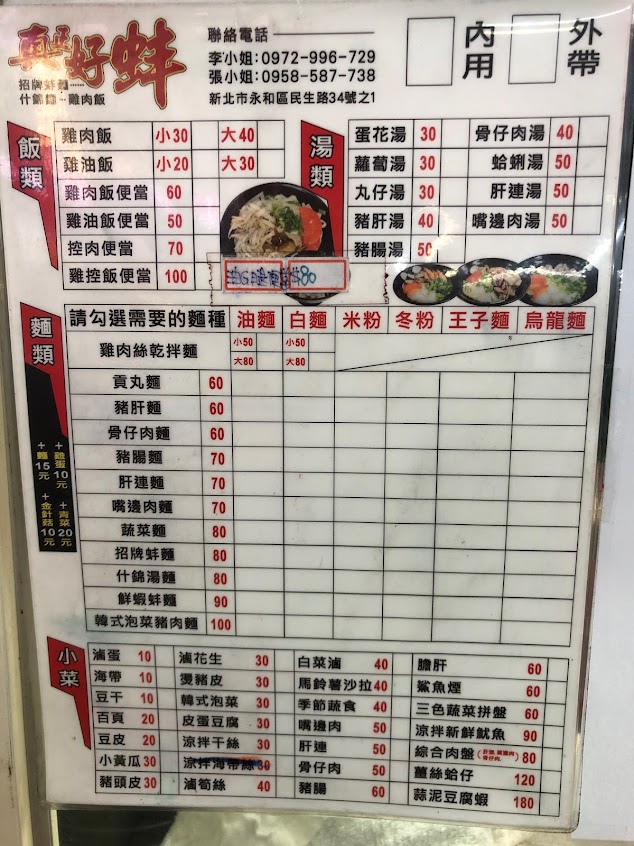 真正好蚌
招牌蚌麵……
什錦麵…雞肉飯
聯絡電話
李小姐:0972-996-729
張小姐:0958-587-738
新北市永和區民生路34號之1
內用
外帶
飯類
雞肉飯 小30 大40
雞油飯 小20 大30
雞肉飯便當 60
雞油飯便當 50
控肉便當 70
雞控飯便當 100
80
湯類
蛋花湯 30 骨仔肉湯 40
蘿蔔湯 30 蛤蜊湯 50
丸仔湯 30 肝連湯 50
豬肝湯 40 嘴邊肉湯 50
豬腸湯 50
麵類
+麵15元
+雞蛋10元
+金針菇10元
+青菜20元
請勾選需要的麵種 油麵 白麵 米粉 冬粉 王子麵 烏龍麵
雞肉絲乾拌麵 小50 大80 小50 大80
貢丸麵 60
豬肝麵 60
骨仔肉麵 60
豬腸麵 70
肝連麵 70
嘴邊肉麵 70
蔬菜麵 80
招牌蚌麵 80
什錦湯麵 80
鮮蝦蚌麵 90
韓式泡菜豬肉麵 100
小菜
滷蛋 10 滷花生 30 白菜滷 40 膽肝 60
海帶 10 燙豬皮 30 馬鈴薯沙拉 40 鯊魚煙 60
豆干 10 韓式泡菜 30 季節蔬食 40 三色蔬菜拼盤 60
百頁 20 皮蛋豆腐 30 嘴邊肉 50 涼拌新鮮魷魚 90
豆皮 20 涼拌干絲 30 肝連 50 綜合肉盤(肝連.嘴邊肉 骨仔肉.) 80
小黃瓜 30 涼拌海帶絲 30 骨仔肉 50 薑絲蛤仔 120
豬頭皮 30 滷筍絲 40 豬腸 60 蒜泥豆腐蝦 180